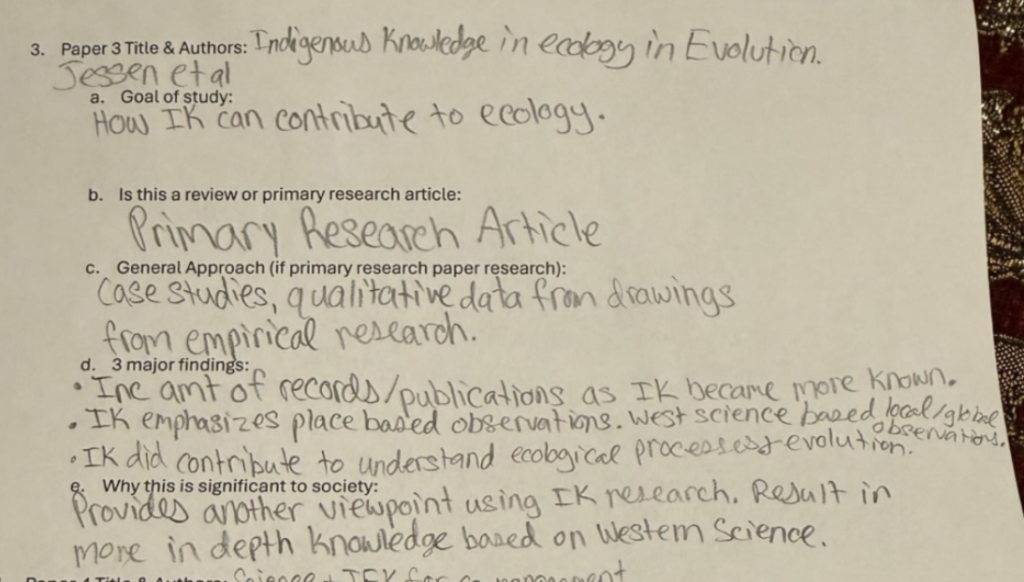 3. Paper 3 Title & Authors: Indigenous Knowledge in ecology in Evolution.
Jessen et al
a. Goal of study:
How IK can contribute to ecology.
b. Is this a review or primary research article:
Primary Research Article
c. General Approach (if primary research paper research):
Case studies, qualitative data from drawings
from empirical research.
d. 3 major findings:
• Inc amt of records/publications as IK became more known.
• IK emphasizes place based observations. West science based local/global
observations.
• IK did contribute to understand ecological processes + evolution.
e. Why this is significant to society:
Provides another viewpoint using IK research. Result in
more in depth knowledge based on Western Science.
Title & Authors: Science + TEK for co management